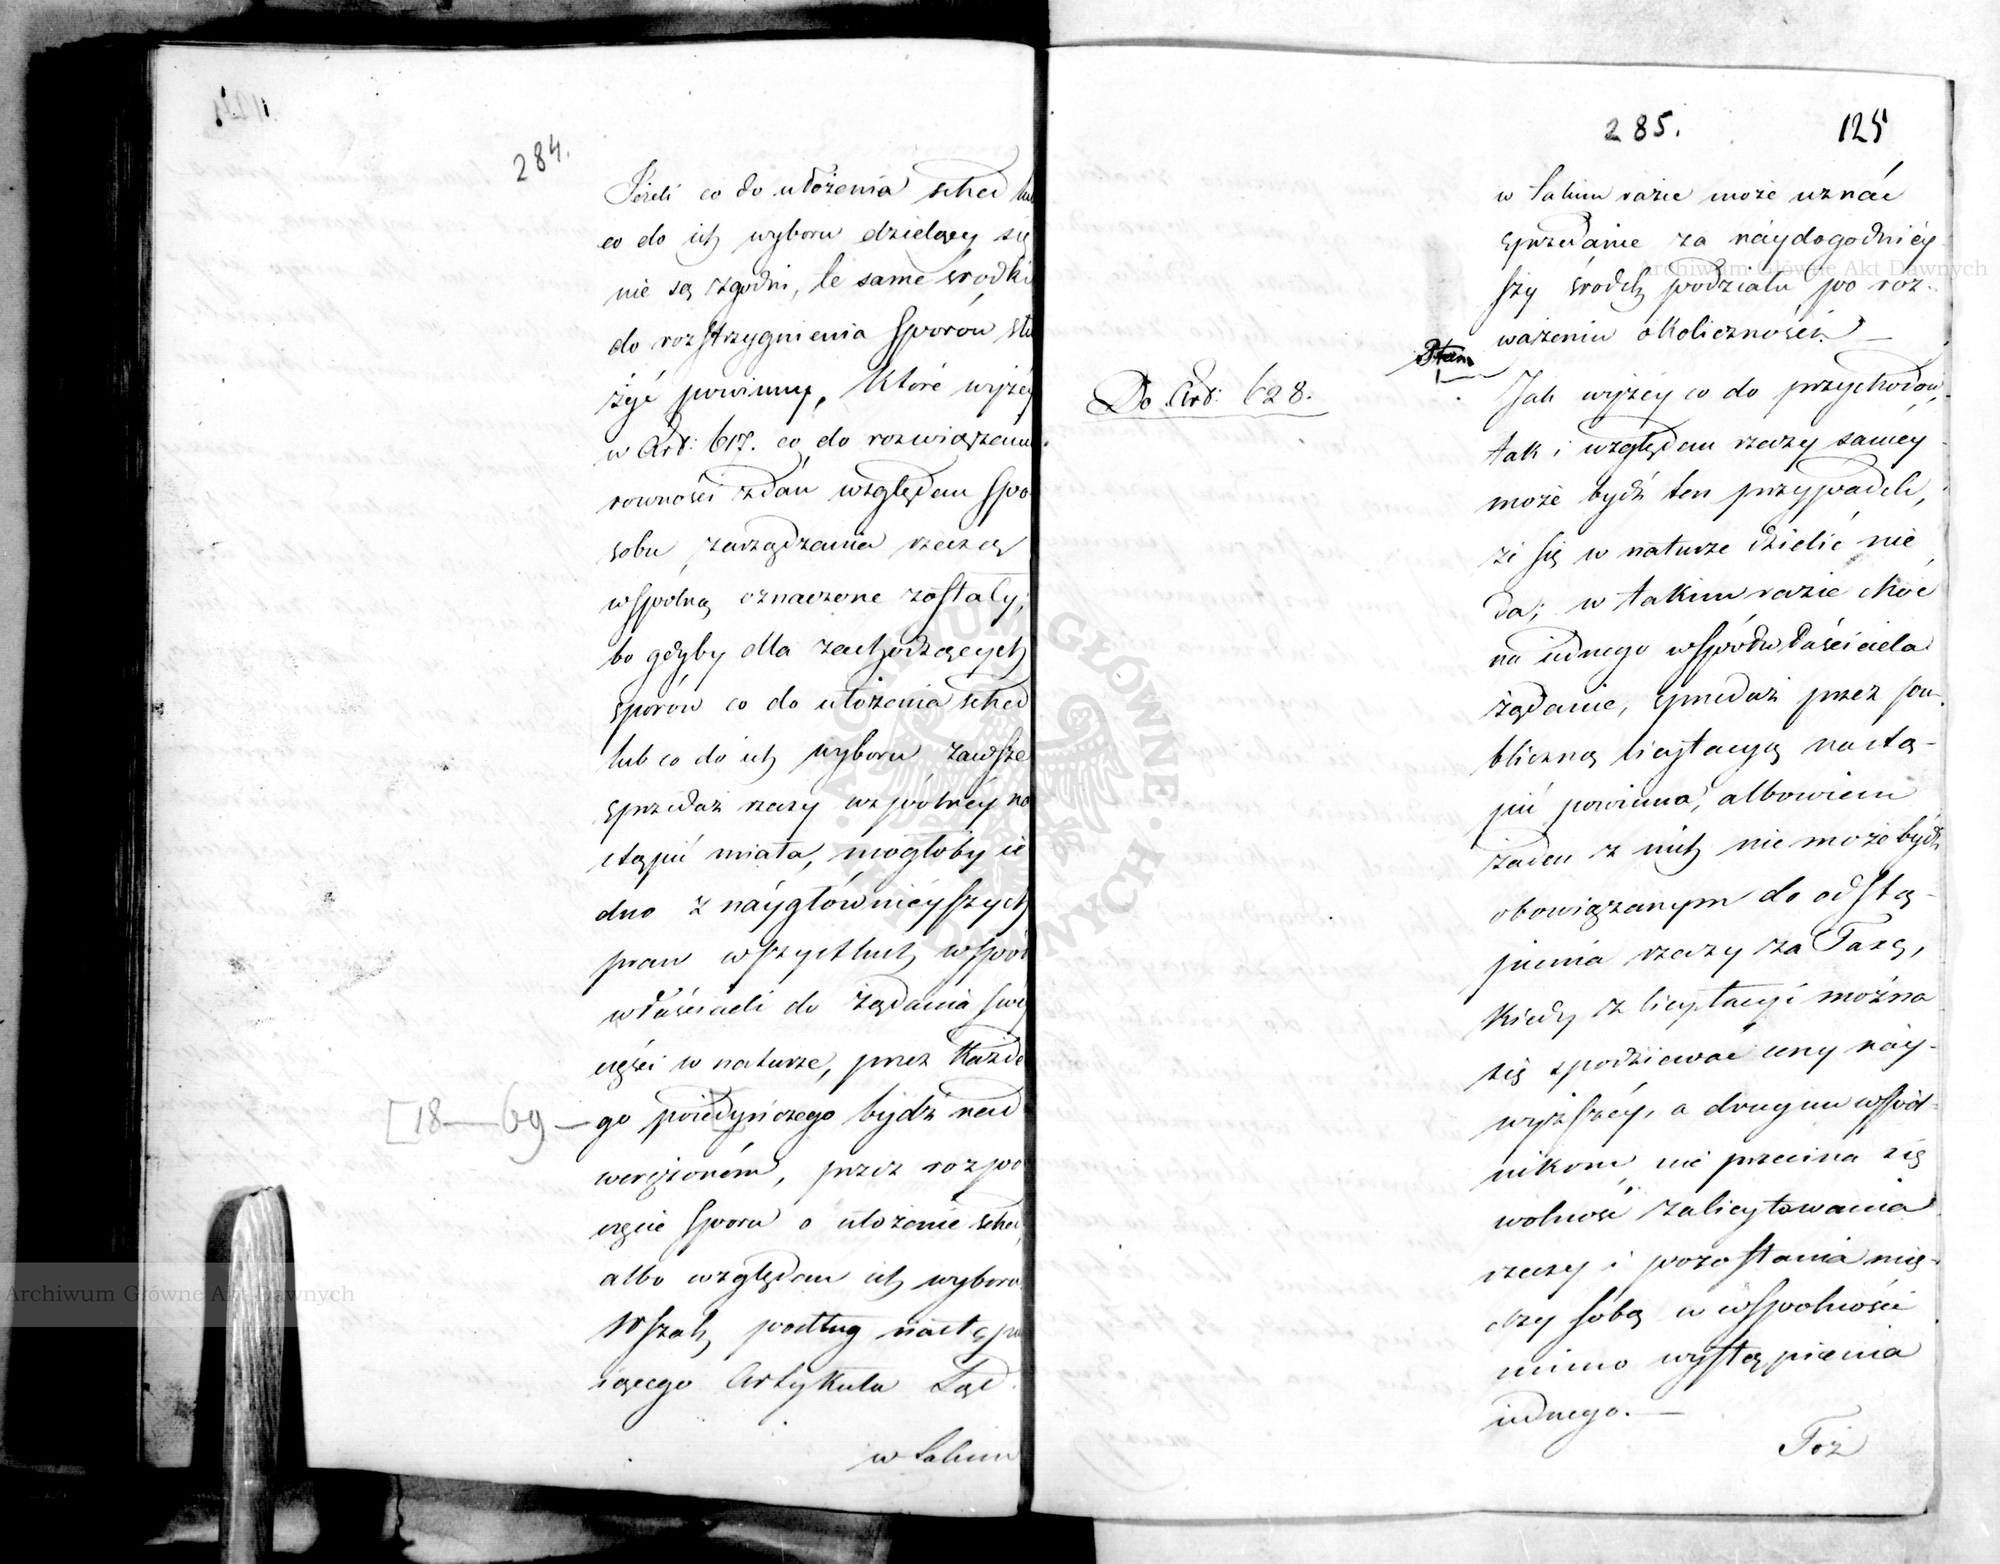 284.
Jeżeli co do ułożenia sched lub
co do ich wyboru dzielący się
nie są zgodni, te same środki
do rozstrzygnienia sporów słu
żyć powinny, które wyżéy
w Art: 617. co do rozwiązania
rowności zdań względem spo
sobu zarządzania rzeczą
wspólną oznaczone zostały;
bo gdyby dla zachodzących
sporów co do ułożenia sched
lub co do ich wyboru zawsze
sprzedaż rzeczy wspólnéy na
stąpić miała, mogłoby ie
dno z náygłównieyszych
praw wszystkich współ
właścicieli do żądania swéy
części w naturze, przez każde
go poiedyńczego bydź nad
weręzoném, przez rozpo
częcie sporu o ułożenie sched,
albo względem ich wyboru.
Wszak podług nastepu
iącego Artykułu Sąd
w takim
[18—69—
285.
125
w takim razie może uznáć
sprzedanie za náydogodniéy
szy środek podziału po roz-
ważeniu okoliczności. —
Do Art: 628.
Jak wyżéy co do przychodów,
tak i względem rzeczy saméy
może bydź ten przypadek,
że się w naturze dzielić nie
da; w takim razie choć
na iednego współwłaściciela
żądanie, sprzedaż przez pu-
bliczną licytacyą nastą-
pić powinna, albowiem
żaden z nich nie może bydź
obowiązanym do odstą-
pienia rzeczy za Taxę,
kiedy z licytacyi można
się spodziewać ceny náy-
wyższéy, a drugim wspól-
nikom nie przecina się
wolność zalicytowania
rzeczy i pozostania mię-
dzy sobą w wspólności
mimo wystąpienia
iednego. —
Toż
Archiwum Główne Akt Dawnych
Archiwum Główne Akt Dawnych
ARCHIWUM GŁÓWNE AKT DAWNYCH